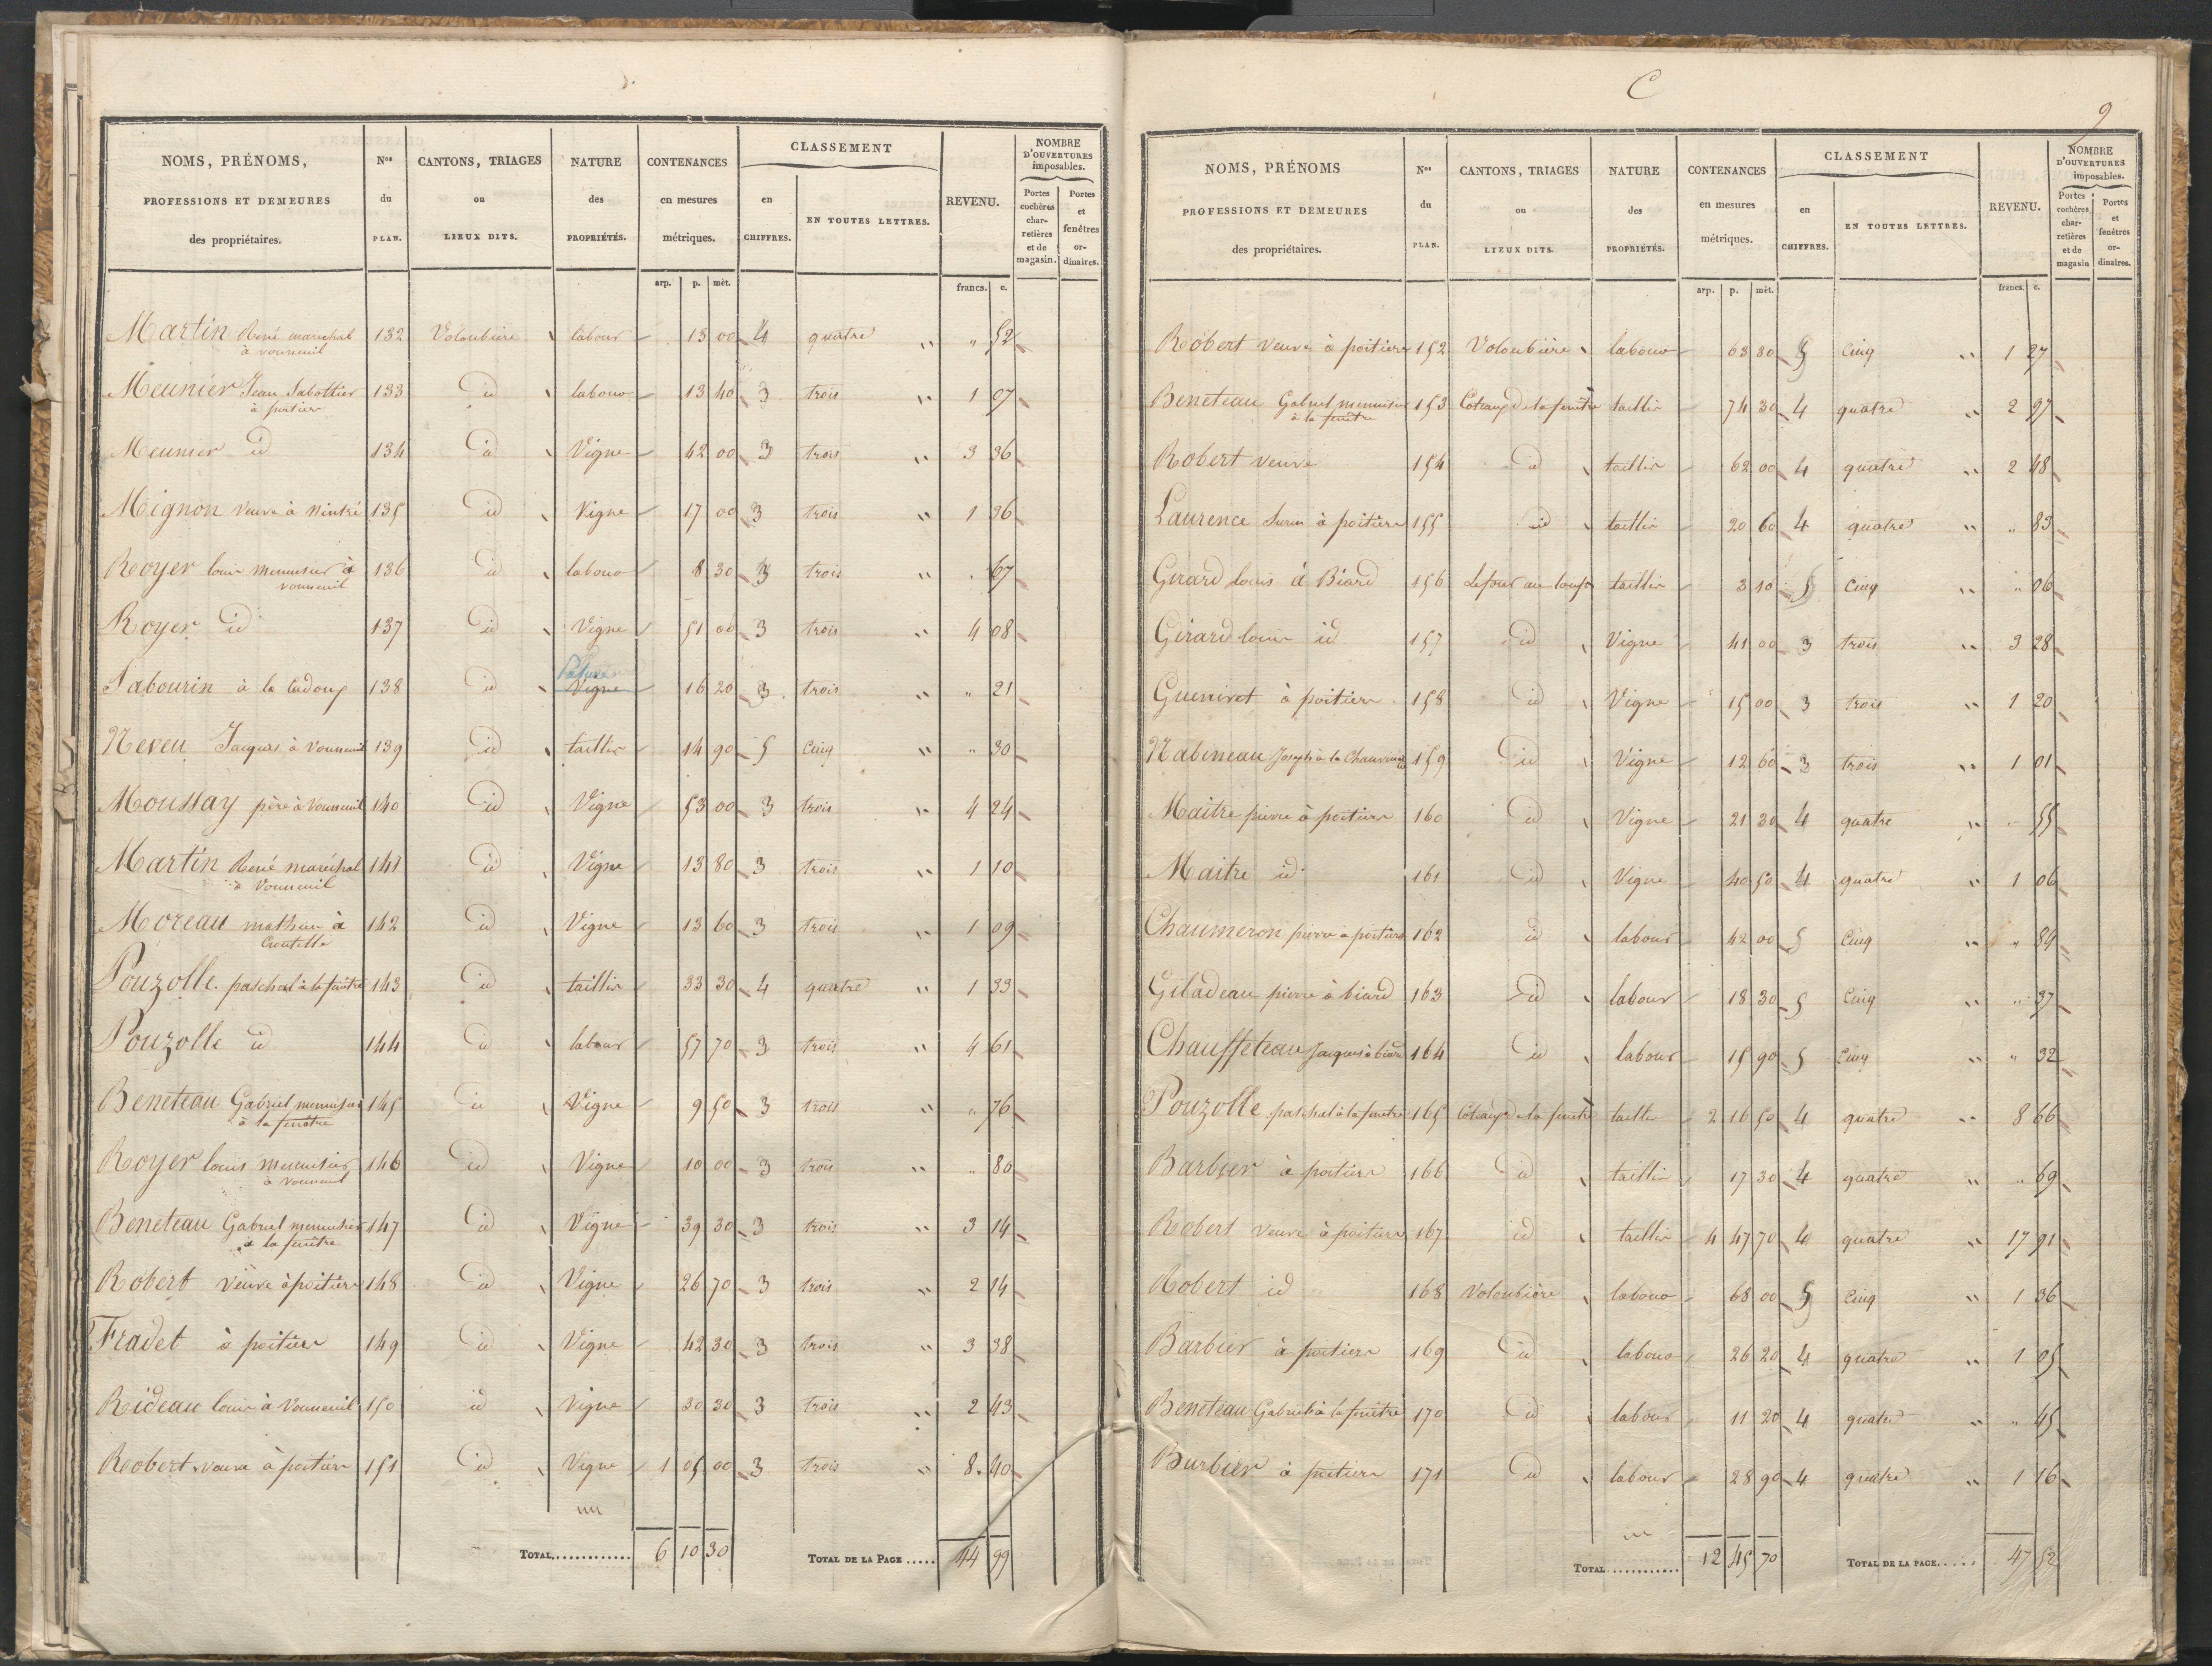 NOMS, PRÉNOMS,
PROFESSIONS ET DEMEURES
des propriétaires.
Nos du PLAN.
CANTONS, TRIAGES ou LIEUX DITS.
NATURE des PROPRIÉTÉS.
CONTENANCES en mesures métriques.
CLASSEMENT
en CHIFFRES.
EN TOUTES LETTRES.
REVENU.
NOMBRE D'OUVERTURES imposables.
Portes cochères charretières et de magasin.
Portes et fenêtres ordinaires.
arp. p. mèt. francs. c.
Martin René marechal à vouneuil 132 Voloubiere labour 13 00 4 quatre " " 52
Meunier Jean Sabottier à poitiers 133 id labour 13 40 3 trois " 1 07
Meunier id 134 id Vigne 42 00 3 trois " 3 36
Mignon veuve à Nintré 135 id Vigne 17 00 3 trois " 1 36
Royer louis menuisier à vouneuil 136 id labour 8 30 3 trois " . 67
Royer id 137 id Vigne 51 00 3 trois " 4 08
Sabourin à la 138 id Vigne 16 20 3 trois " " 21
Neveu Jacques à Vouneuil 139 id taillis 14 90 5 Cinq " " 30
Moussay père à Vouneuil 140 id Vigne 53 00 3 trois " 4 24
Martin René maréchal à Vouneuil 141 id Vigne 13 80 3 trois " 1 10
Moreau mathieu à Croutelle 142 id Vigne 13 60 3 trois " 1 09
Pouzolle paschal à la fenêtre 143 id taillis 33 30 4 quatre " 1 33
Pouzolle id 144 id labour 57 70 3 trois " 4 61
Beneteau Gabriel menuisier à la fenêtre 145 id Vigne 9 50 3 trois " " 76
Royer louis menuisier à vouneuil 146 id Vigne 10 00 3 trois " " 80
Beneteau Gabriel menuisier à la fenêtre 147 id Vigne 39 30 3 trois " 3 14
Robert veuve à poitiers 148 id Vigne 26 70 3 trois " 2 14
Fradet à poitiers 149 id Vigne 42 30 3 trois " 3 38
Rideau louis à Vouneuil 150 id Vigne 30 30 3 trois " 2 43
Robert veuve à poitiers 151 id Vigne 1 05 00 3 trois " 8 40
TOTAL............. 6 10 30 TOTAL DE LA PAGE ..... 44 99
C
9
NOMS, PRÉNOMS
PROFESSIONS ET DEMEURES
des propriétaires.
Nos du PLAN.
CANTONS, TRIAGES ou LIEUX DITS.
NATURE des PROPRIÉTÉS.
CONTENANCES en mesures métriques.
CLASSEMENT
en CHIFFRES.
EN TOUTES LETTRES.
REVENU.
NOMBRE D'OUVERTURES imposables.
Portes cochères charretières et de magasin
Portes et fenêtres ordinaires.
arp. p. mèt. francs. c.
Robert veuve à poitiers 152 Voloubière labour 63 30 5 Cinq " 1 27
Beneteau Gabriel menuisier à la fenêtre 153 Coteaux de la fenêtre taillis 74 30 4 quatre " 2 97
Robert veuve 154 id taillis 62 00 4 quatre " 2 48
Laurence à poitiers 155 id taillis 20 60 4 quatre " " 83
Girard louis à Biard 156 taillis 3 10 5 Cinq " " 06
Girard louis id 157 id Vigne 41 00 3 trois " 3 28
Guenivet à poitiers 158 id Vigne 15 00 3 trois " 1 20
Nabineau Joseph à la 159 id Vigne 12 60 3 trois " 1 01
Maitre pierre à poitiers 160 id Vigne 21 30 4 quatre " " 55
Maitre id 161 id Vigne 40 50 4 quatre " 1 06
Chaumeron pierre à poitiers 162 id labour 42 00 5 Cinq " " 84
Giladeau pierre à biard 163 id labour 18 30 5 Cinq " " 37
Chauffeteau Jacques à biard 164 id labour 15 90 5 Cinq " " 32
Pouzolle paschal à la fenêtre 165 Coteaux de la fenêtre taillis 2 16 50 4 quatre " 8 66
Barbier à poitiers 166 id taillis 17 30 4 quatre " " 69
Robert veuve à poitiers 167 id taillis 4 47 70 4 quatre " 17 91
Robert id 168 Voloubière labour 68 00 5 Cinq " 1 36
Barbier à poitiers 169 id labour 26 20 4 quatre " 1 05
Beneteau Gabriel à la fenêtre 170 id labour 11 20 4 quatre " " 45
Barbier à poitiers 171 id labour 28 90 4 quatre " 1 16
TOTAL............ 12 45 70 TOTAL DE LA PAGE..... 47 52